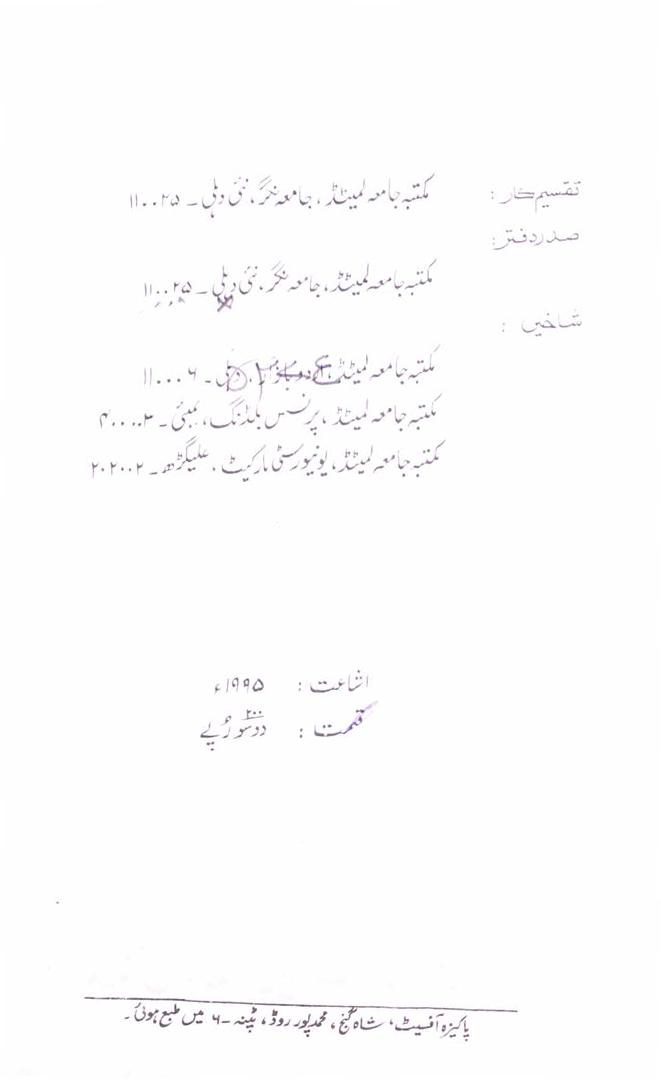 تقسیم کار : مکتبہ جامعہ لمیٹڈ، جامعہ نگر، نئی دہلی ۔ ۱۱۰۰۲۵
صدر دفتر:
مکتبہ جامعہ لمیٹڈ، جامعہ نگر، نئی دہلی ۔ ۱۱۰۰۲۵
شاخیں :
مکتبہ جامعہ لمیٹڈ، اردو بازار، دہلی ۔ ۱۱۰۰۰۶
مکتبہ جامعہ لمیٹڈ، پرنسس بلڈنگ، بمبئی ۔ ۴۰۰۰۰۳
مکتبہ جامعہ لمیٹڈ، یونیورسٹی مارکیٹ، علیگڑھ ۔ ۲۰۲۰۰۲
اشاعت : ۱۹۹۵ء
قیمت : ۲۰۰ دو سو روپے
پاکیزہ آفسیٹ، شاہ گنج، محمد پور روڈ، پٹنہ ۔ ۶ میں طبع ہوئی ۔